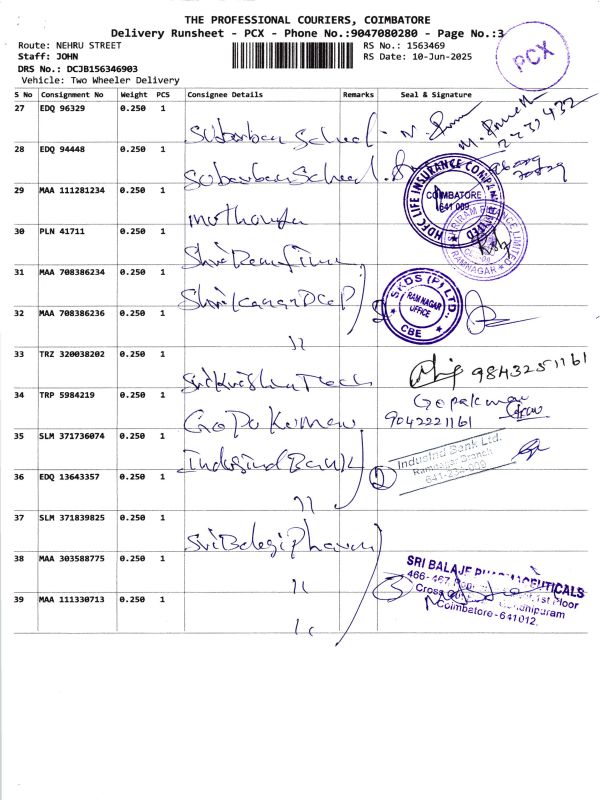 THE PROFESSIONAL COURIERS, COIMBATORE
Delivery Runsheet - PCX - Phone No.:9047080280 - Page No.:3
Route: NEHRU STREET
RS No.: 1563469
Staff: JOHN
RS Date: 10-Jun-2025
DRS No.: DCJB156346903
Vehicle: Two Wheeler Delivery
PCX
S No Consignment No Weight PCS Consignee Details Remarks Seal & Signature
27 EDQ 96329 0.250 1
Suburban School
28 EDQ 94448 0.250 1
Suburban School
29 MAA 111281234 0.250 1
Muthangu
HDFC LIFE INSURANCE COMPANY LIMITED
COIMBATORE
641 009
30 PLN 41711 0.250 1
SHRIRAM FINANCE LIMITED
RAMNAGAR
31 MAA 708386234 0.250 1
SKDS (P) LTD.
RAM NAGAR
OFFICE
CBE
32 MAA 708386236 0.250 1
"
33 TRZ 320038202 0.250 1
Sri Krishna Tech
9843251161
34 TRP 5984219 0.250 1
Gopa Kumar
Gopakumar
9042221161
35 SLM 371736074 0.250 1
Indusind Bank
2
Indusind Bank Ltd.
Ramnagar Branch
36 EDQ 13643357 0.250 1
"
37 SLM 371839825 0.250 1
Sri Balaji Pharma
38 MAA 303588775 0.250 1
"
3
SRI BALAJE PHARMACEUTICALS
466-467, 1st Floor
Cross
Gandhipuram
Coimbatore-641012.
39 MAA 111330713 0.250 1
"